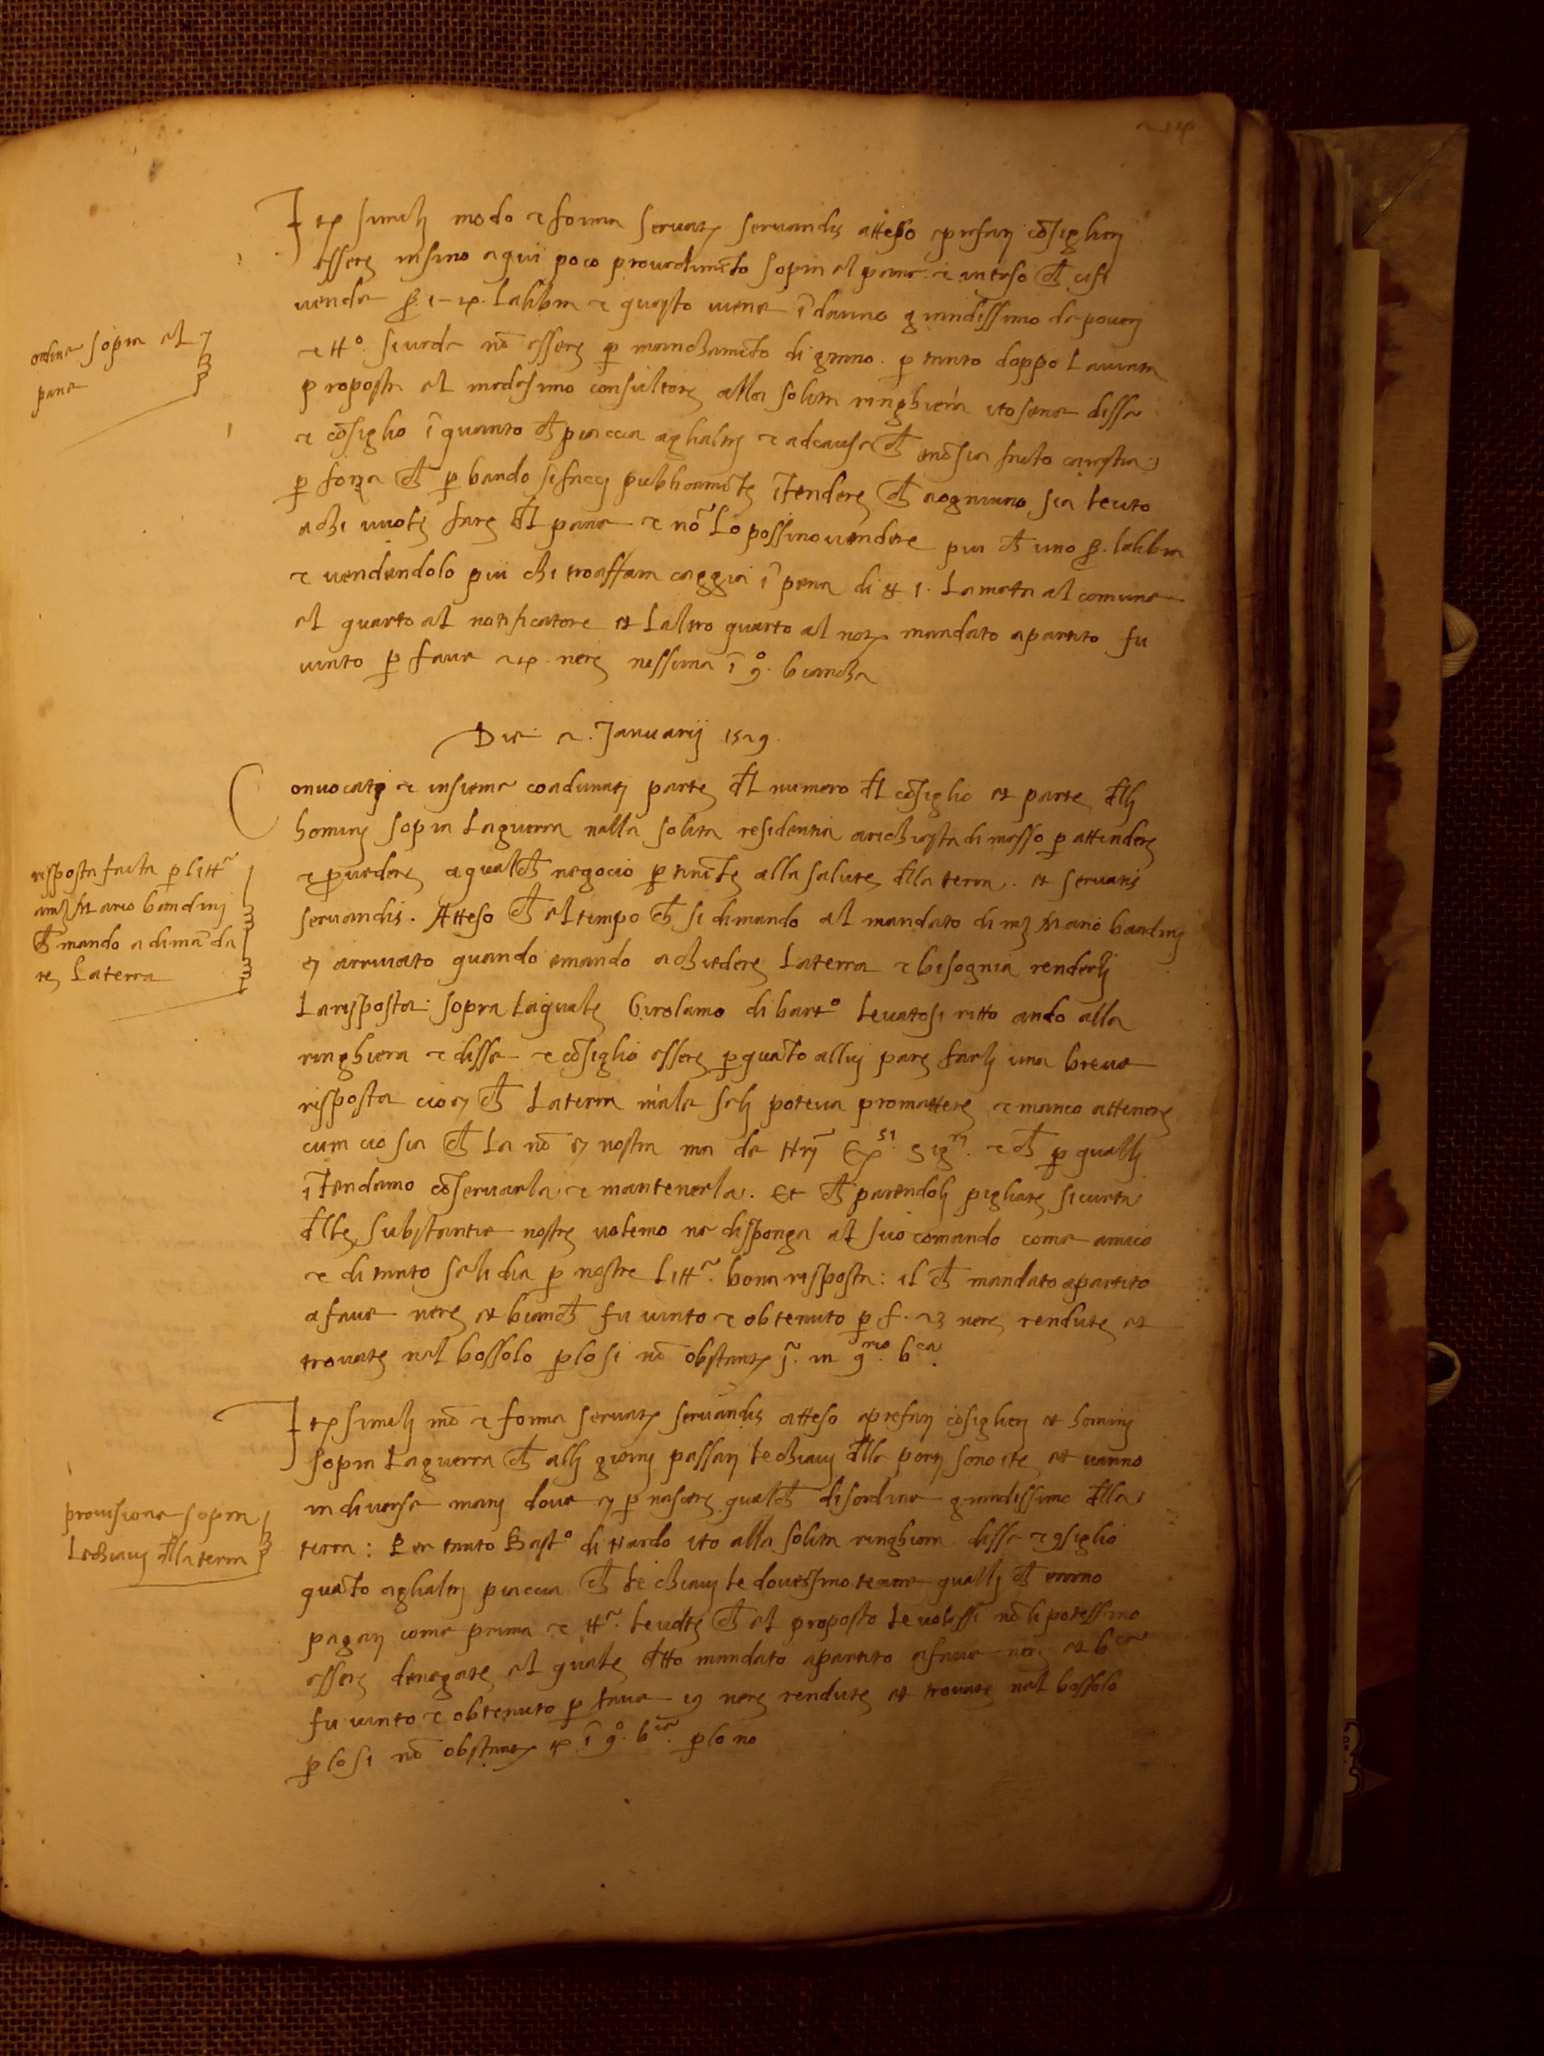 214
Itē simili modo e forma servatis servandis atteso e prefati cōsiglieri
essere insino a qui poco provedimēto sopra el pane e inteso ch̄ cisi
vende la libra e questo viene ī danno grandissimo de poveri
si vede nō essere p manchamēto di grano. p tanto doppo
proposta el medesimo consultore alla solita ringhiera itosene disse
e cōsiglio ī quanto ch̄ piaccia aglialtri e adcausa ch̄ nō sia fatto carestia
p forza ch̄ p bando si facci publicamēte ītendere ch̄ a ognuno sia
a chi vuole fare el pane e nō lo possino vendere piu ch̄ uno la libra
e vendendolo piu chi troassara caggia ī pena di 1. la meta al comune
el quarto al notificatore et laltro quarto al mandato a partito fu
vinto p fave nere nessuna ī biancha
ordine sopra el
pane
Die 2. Januarij 1529.
Convocati e insieme coadunati parte del numero del cōsiglio et parte delli
homini sopra la guerra nella solita residentia a richiesta di messo p attendere
e pvedere a qualch̄ negocio ptinēte alla salute della terra. et servatis
servandis. Atteso ch̄ el tempo ch̄ si dimando al mandato di Mario bandini
arrivato quando mando a chiedere la terra e bisognia renderli
la risposta: sopra la quale Girolamo di bartº levatosi ritto ando alla
ringhiera e disse e cōsiglio essere pquāto allui pare farli una breve
risposta cioe ch̄ la terra male seli poteva promettere e manco attenere
cum cio sia ch̄ la nō e nostra ma de e ch̄ p quelli
ītendamo cōservarla e mantenerla. Et ch̄ parendoli pigliare sicurta
delle substantie nostre volemo ne disponga al suo comando come amico
e di tanto seli dia p nostre litt. bona risposta: il ch̄ mandato a partito
a fave nere et bianch̄ fu vinto e obtenuto p f. 23 nere rendute et
trovate nel bossolo plo si nō obstante in
risposta fatta p litt
Mario bandini
ch̄ mando a dimāda
re la terra
Itē simili mō e forma servatis servandis atteso e prefati cōsiglieri et homini
sopra la guerra ch̄ alli giorni passati le chiavi delle porti sono ite et vanno
in diverse mani dove e p nascere qualch̄ disordine grandissimo della
terra: Per tanto Bastº di Nardo ito alla solita ringhiera disse e cōsiglio
quāto aglialtri piaccia ch̄ le chiavi le dovessino tenere quelli ch̄ erono
pagati come prima e ch̄ el proposto le volessi nō li potessino
essere denegate el quale detto mandato a partito a fave nere et
fu vinto e obtenuto p fave 19 nere rendute et trovate nel bossolo
plo si nō obstante plo no
provisione sopra
le chiavi della terra